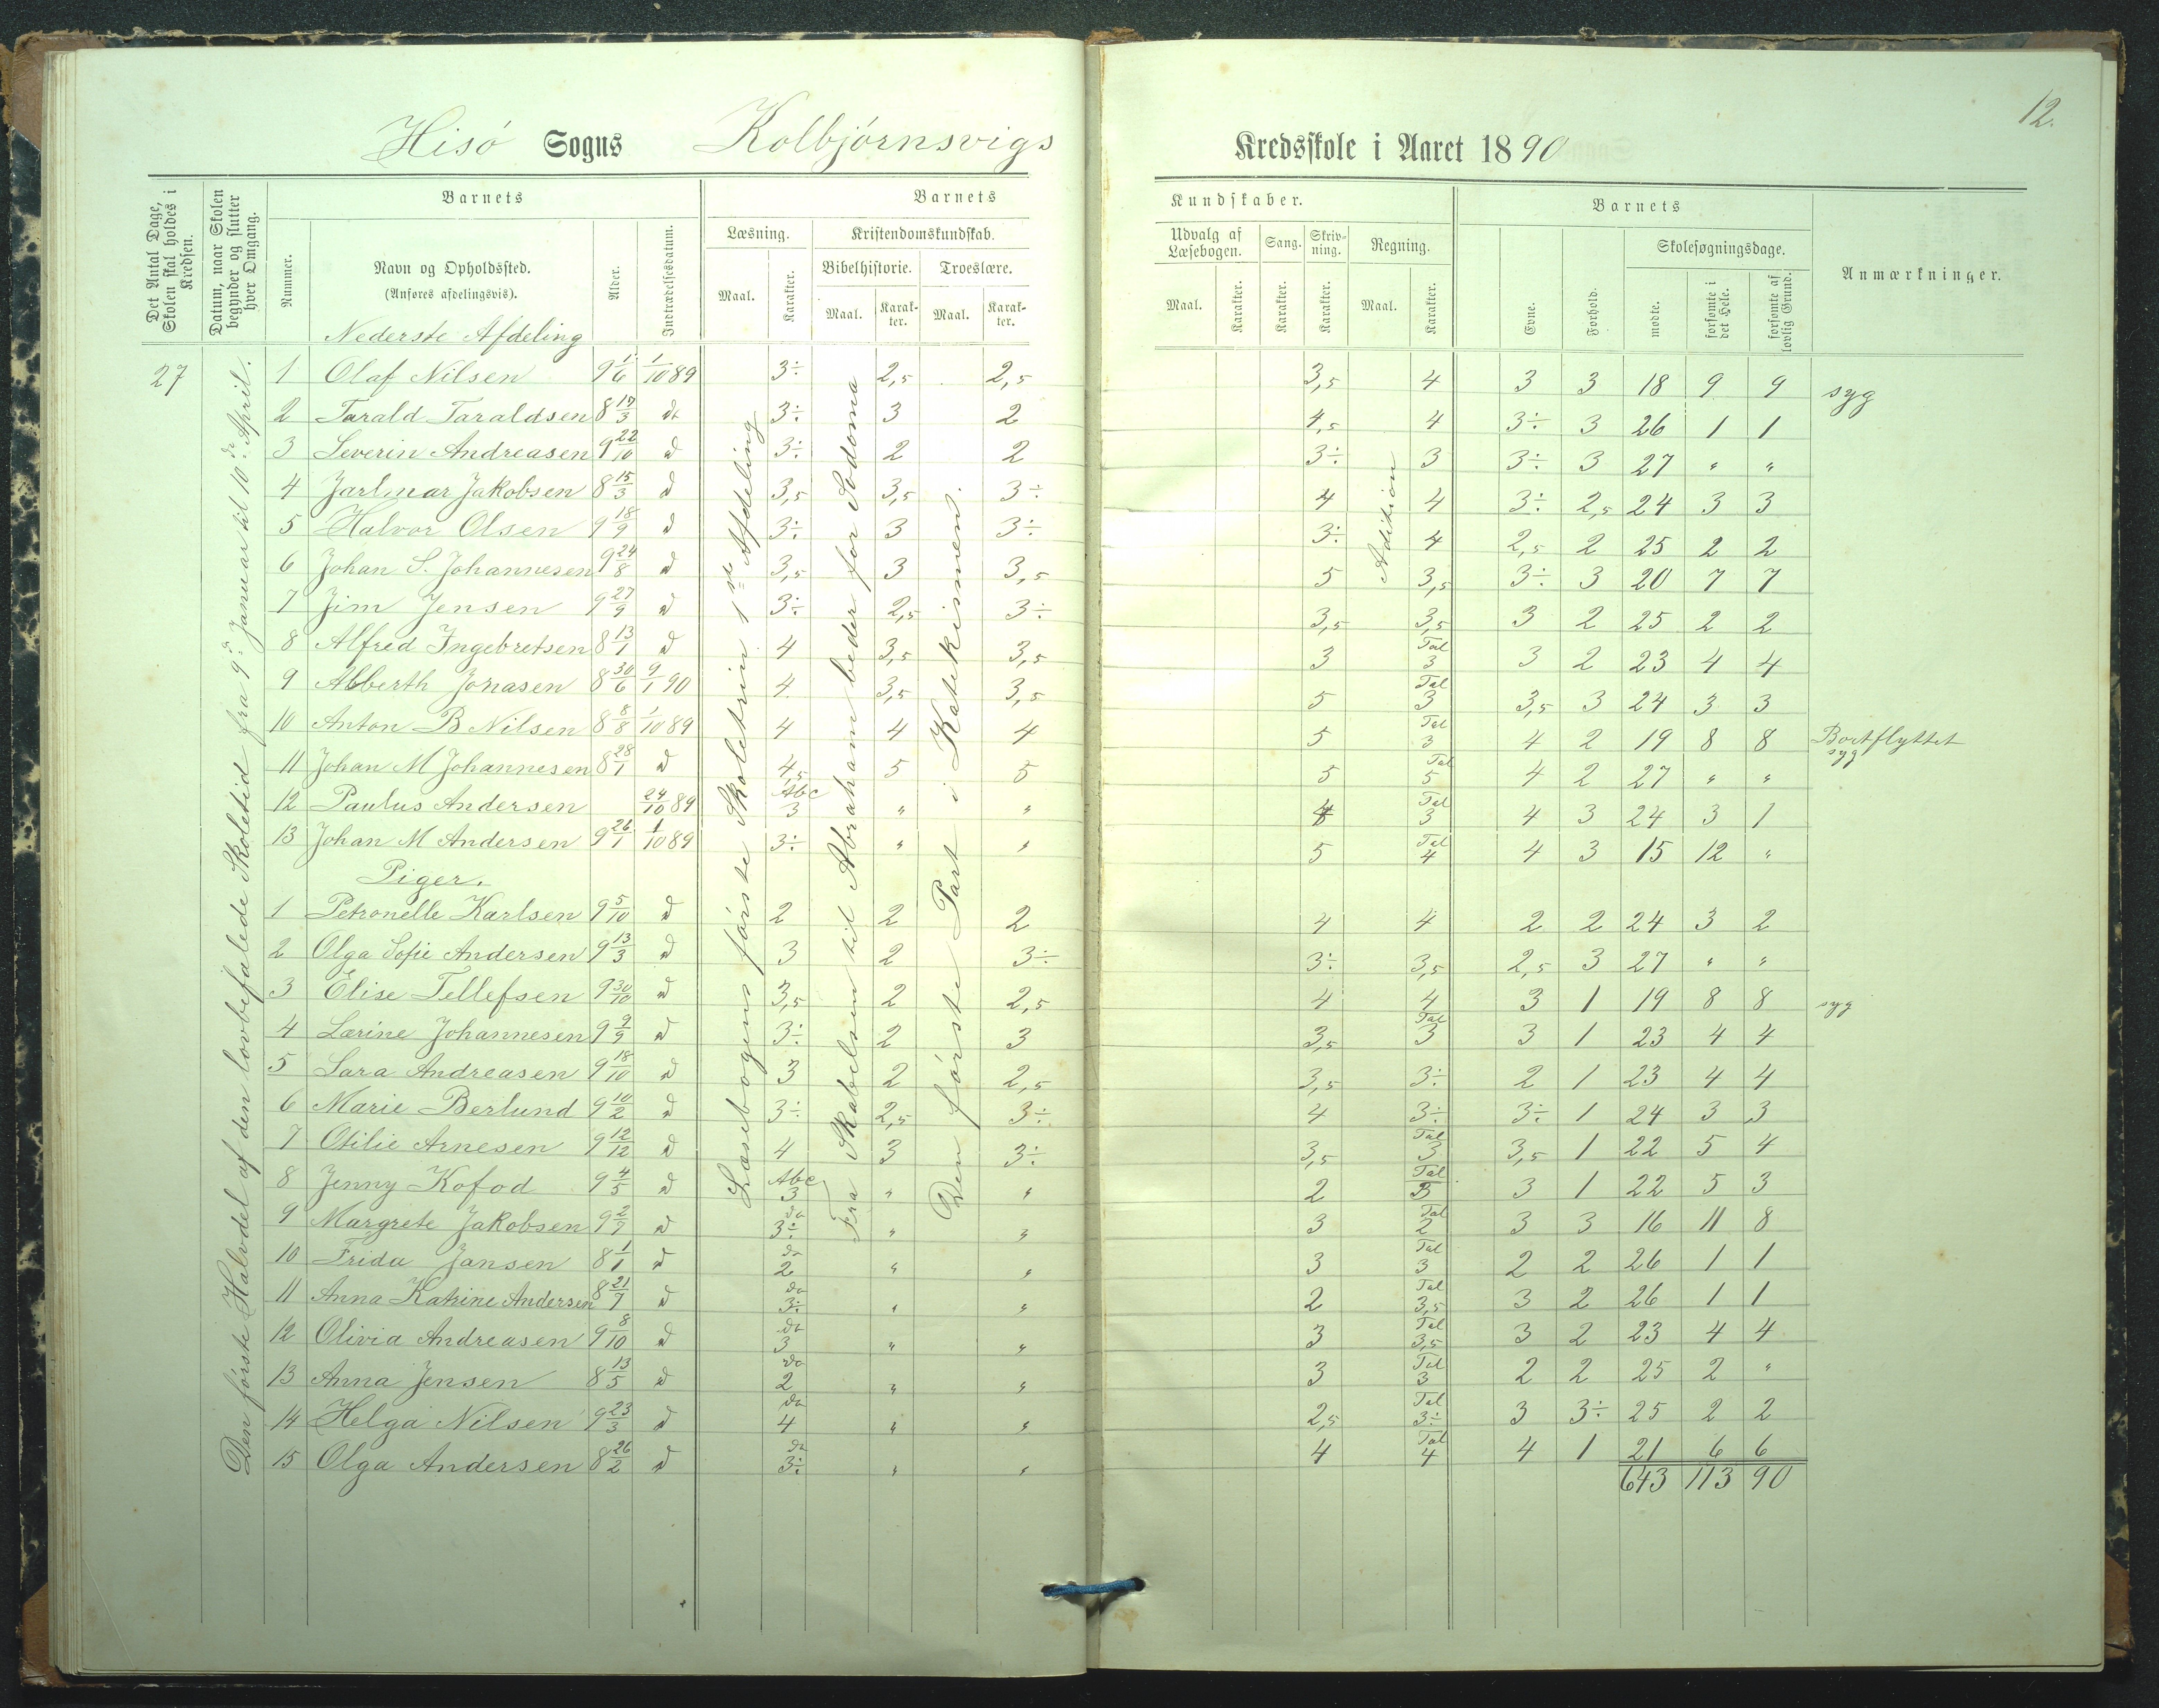 12.
Hisö Sogns Kolbjörnsvigs Kredsskole i Aaret 1890
Det Antal Dage, Skolen skal holdes i Kredsen.
Datum, naar Skolen begynder og slutter hver Omgang.
Barnets
Nummer.
Navn og Opholdssted.
(Anføres afdelingsvis).
Alder.
Indtrædelsesdatum.
Barnets Kundskaber.
Læsning.
Maal.
Karakter.
Kristendomskundskab.
Bibelhistorie.
Maal.
Karakter.
Troeslære.
Maal.
Karakter.
Udvalg af Læsebogen.
Maal.
Karakter.
Sang.
Karakter.
Skrivning.
Karakter.
Regning.
Maal.
Karakter.
Barnets
Evne.
Forhold.
Skolesøgningsdage.
mødte.
forsømte i det Hele.
forsømte af lovlig Grund.
Anmærkninger.
Nederste Afdeling
27
Den første Halvdel af den lovbefalede Skoletid fra 9de Januar til 10de April.
Læsebogens förste Skoletrin 1ste Afdeling
Fra Skabelsen til Abraham beder for Sodoma
Den förste Part i Katekismen.
Adition
1 Olaf Nilsen 9 1/6 1/10 89 3÷ 2,5 2,5 3,5 4 3 3 18 9 9 syg
2 Tarald Taraldsen 8 17/3 do 3÷ 3 2 4,5 4 3÷ 3 26 1 1
3 Severin Andreasen 9 22/10 d 3÷ 2 2 3÷ 3 3÷ 3 27 " "
4 Jarlmar Jakobsen 8 15/3 d 3,5 3,5 3÷ 4 4 3÷ 2,5 24 3 3
5 Halvor Olsen 9 18/9 d 3÷ 3 3÷ 3÷ 4 2,5 2 25 2 2
6 Johan S. Johannesen 9 24/8 d 3,5 3 3,5 5 3,5 3÷ 3 20 7 7
7 Jim Jensen 9 27/9 d 3÷ 2,5 3÷ 3,5 3,5 3 2 25 2 2
8 Alfred Ingebretsen 8 13/1 d 4 3,5 3,5 3 Tal 3 3 2 23 4 4
9 Abberth Jonasen 8 30/6 9/1 90 4 3,5 3,5 5 Tal 3 3,5 3 24 3 3
10 Anton B Nilsen 8 8/8 1/10 89 4 4 4 5 Tal 3 4 2 19 8 8 Bortflyttet syg
11 Johan M Johannesen 8 28/1 d 4,5 5 5 5 Tal 5 4 2 27 " "
12 Paulus Andersen 24/10 89 Abc 3 " " 4 Tal 3 4 3 24 3 1
13 Johan M Andersen 9 26/1 1/10 89 3÷ " " 5 Tal 4 4 3 15 12 "
Piger.
1 Petronelle Karlsen 9 5/10 d 2 2 2 4 4 2 2 24 3 2
2 Olga Sofie Andersen 9 13/3 d 3 2 3÷ 3÷ 3,5 2,5 3 27 " "
3 Elise Tellefsen 9 30/10 d 3,5 2 2,5 4 4 3 1 19 8 8 syg
4 Larine Johannesen 9 9/9 d 3÷ 2 3 3,5 Tal 3 3 1 23 4 4
5 Sara Andreasen 9 18/10 d 3 2 2,5 3,5 3÷ 2 1 23 4 4
6 Marie Berlund 9 10/2 d 3÷ 2,5 3÷ 4 3÷ 3÷ 1 24 3 3
7 Otilie Arnesen 9 12/12 d 4 3 3÷ 3,5 Tal 3 3,5 1 22 5 4
8 Jenny Kofod 9 4/5 d Abc 3 " " 2 Tal 3 3 1 22 5 3
9 Margrete Jakobsen 9 2/7 d do 3÷ " " 3 Tal 2 3 3 16 11 8
10 Frida Jansen 8 1/1 d do 2 " " 3 Tal 3 2 2 26 1 1
11 Anna Katrine Andersen 8 21/7 d do 3÷ " " 2 Tal 3,5 3 2 26 1 1
12 Olivia Andreasen 9 8/10 d do 3 " " 3 Tal 3,5 3 2 23 4 4
13 Anna Jensen 8 13/5 d do 2 " " 3 Tal 3 2 2 25 2 "
14 Helga Nilsen 9 23/3 d do 4 " " 2,5 Tal 3÷ 3 3÷ 25 2 2
15 Olga Andersen 8 26/2 d do 3÷ " " 4 Tal 4 4 1 21 6 6
643 113 90